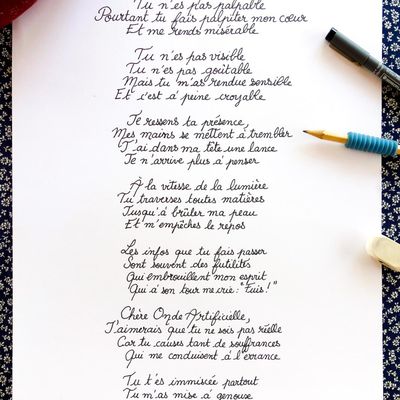 Tu n'es pas palpable
Pourtant tu fais palpiter mon cœur
Et me rends misérable
Tu n'es pas visible
Tu n'es pas goûtable
Mais tu m'as rendue sensible
Et c'est à peine croyable
Je ressens ta présence,
Mes mains se mettent à trembler
J'ai dans ma tête une lance
Je n'arrive plus à penser
À la vitesse de la lumière
Tu traverses toutes matières
Jusqu'à brûler ma peau
Et m'empêches le repos
Les infos que tu fais passer
Sont souvent des futilités
Qui embrouillent mon esprit
Qui à son tour me crie: "Fuis!"
Chère Onde Artificielle,
J'aimerais que tu ne sois pas réelle
Car tu causes tant de souffrances
Qui me conduisent à l'errance
Tu t'es immiscée partout
Tu m'as mise à genoux